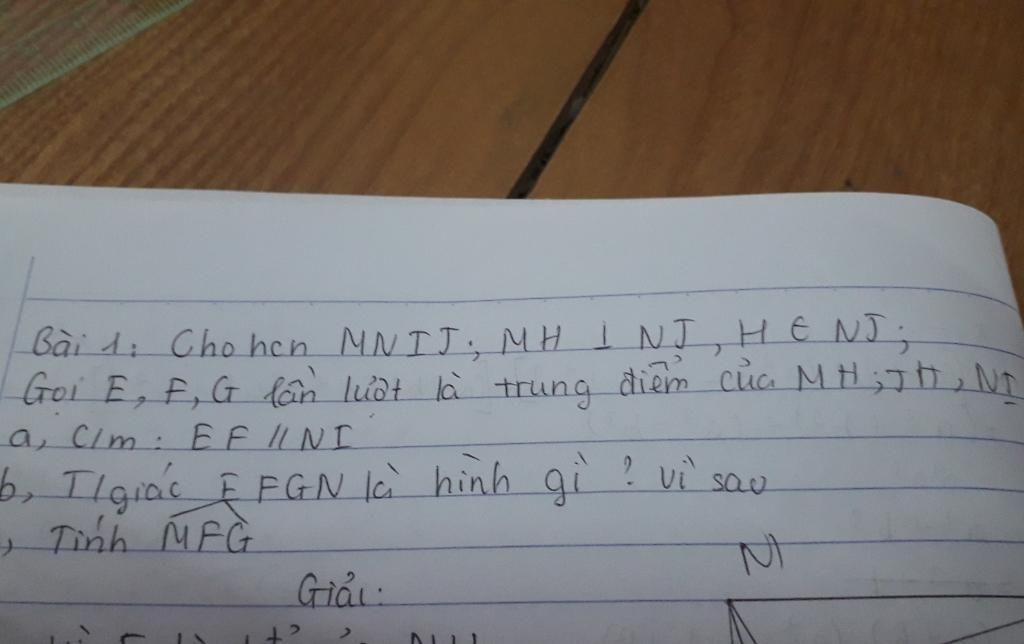 Bài 1: Cho hcn MNIJ; MH ⊥ NJ, H ∈ NJ;
Gọi E, F, G lần lượt là trung điểm của MH; JH, NI
a, C/m: EF // NI
b, T/giác EFGN là hình gì? Vì sao
, Tính MFG
Giải:
N